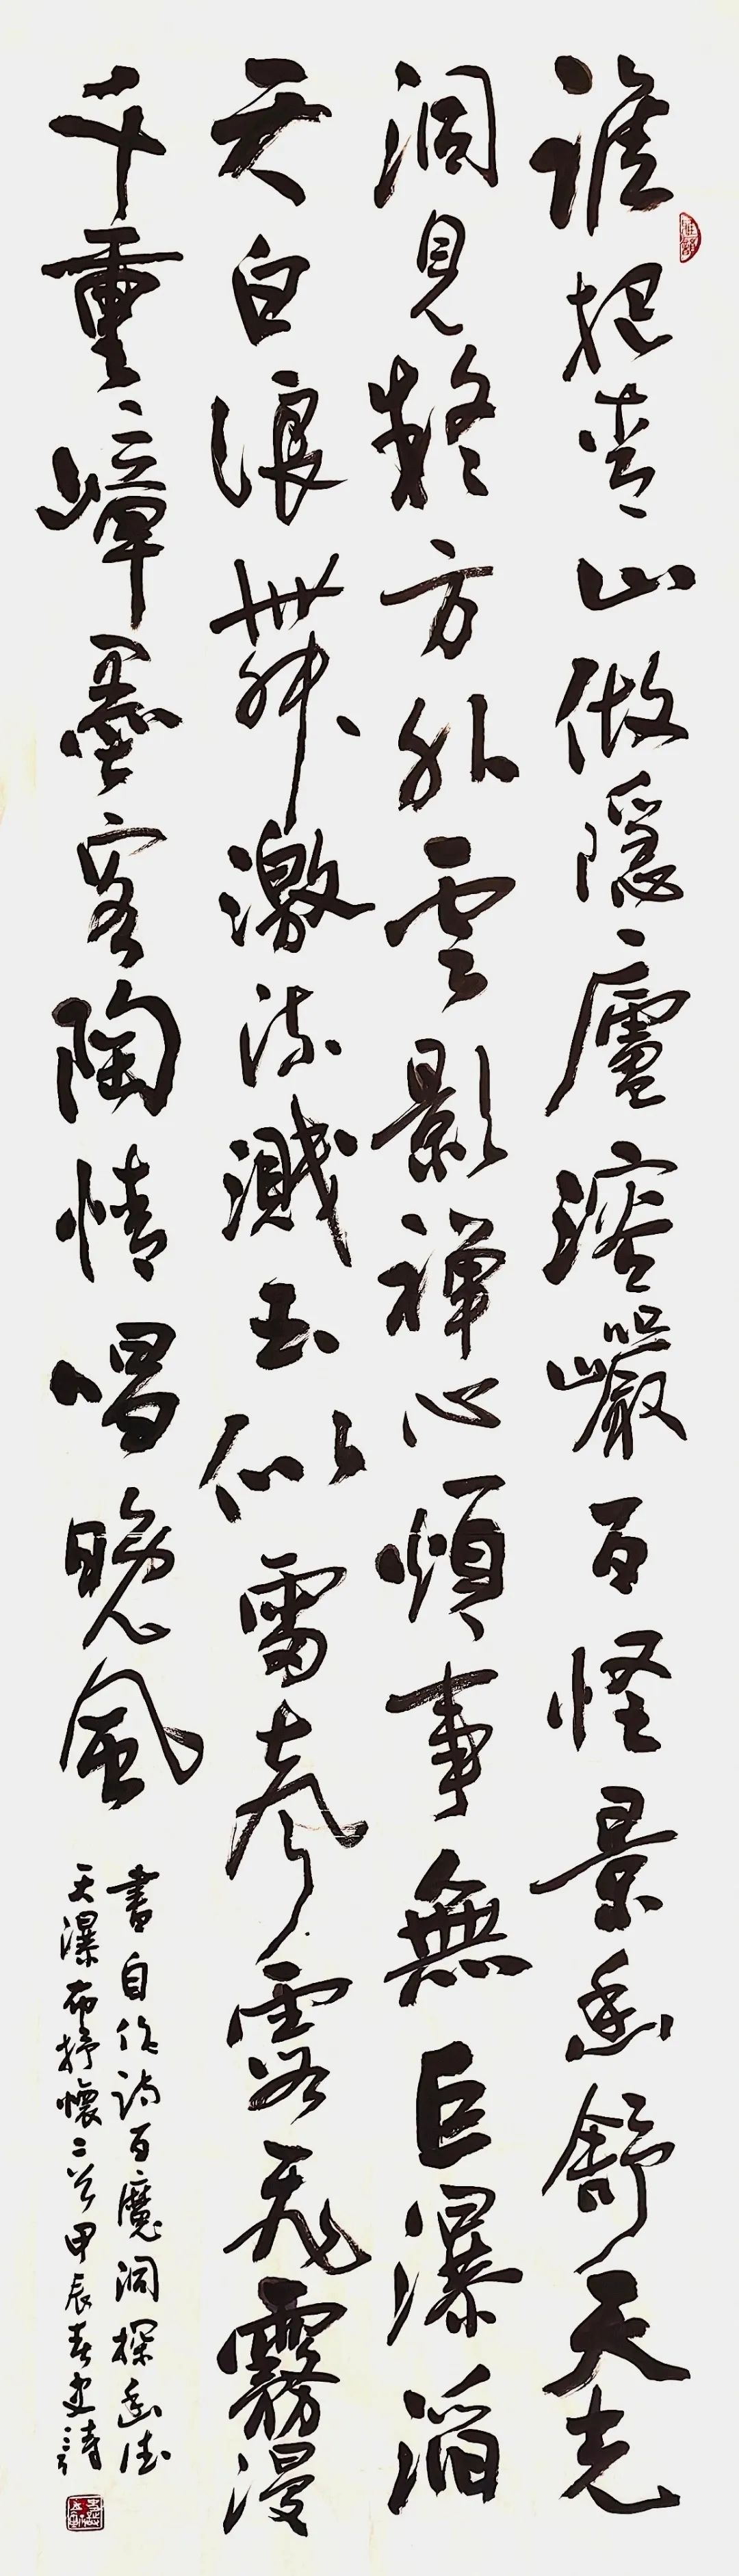 誰把青山做隱廬溶巖百怪景悉舒天光
洞見疑方外雲影禪心煩事無巨瀑滔
天白浪舞激流濺玉似雷聲露飛霧漫
千重嶂墨客陶情唱晚風
書自作詩百魔洞探幽德
天瀑布抒懷二首甲辰春史詩